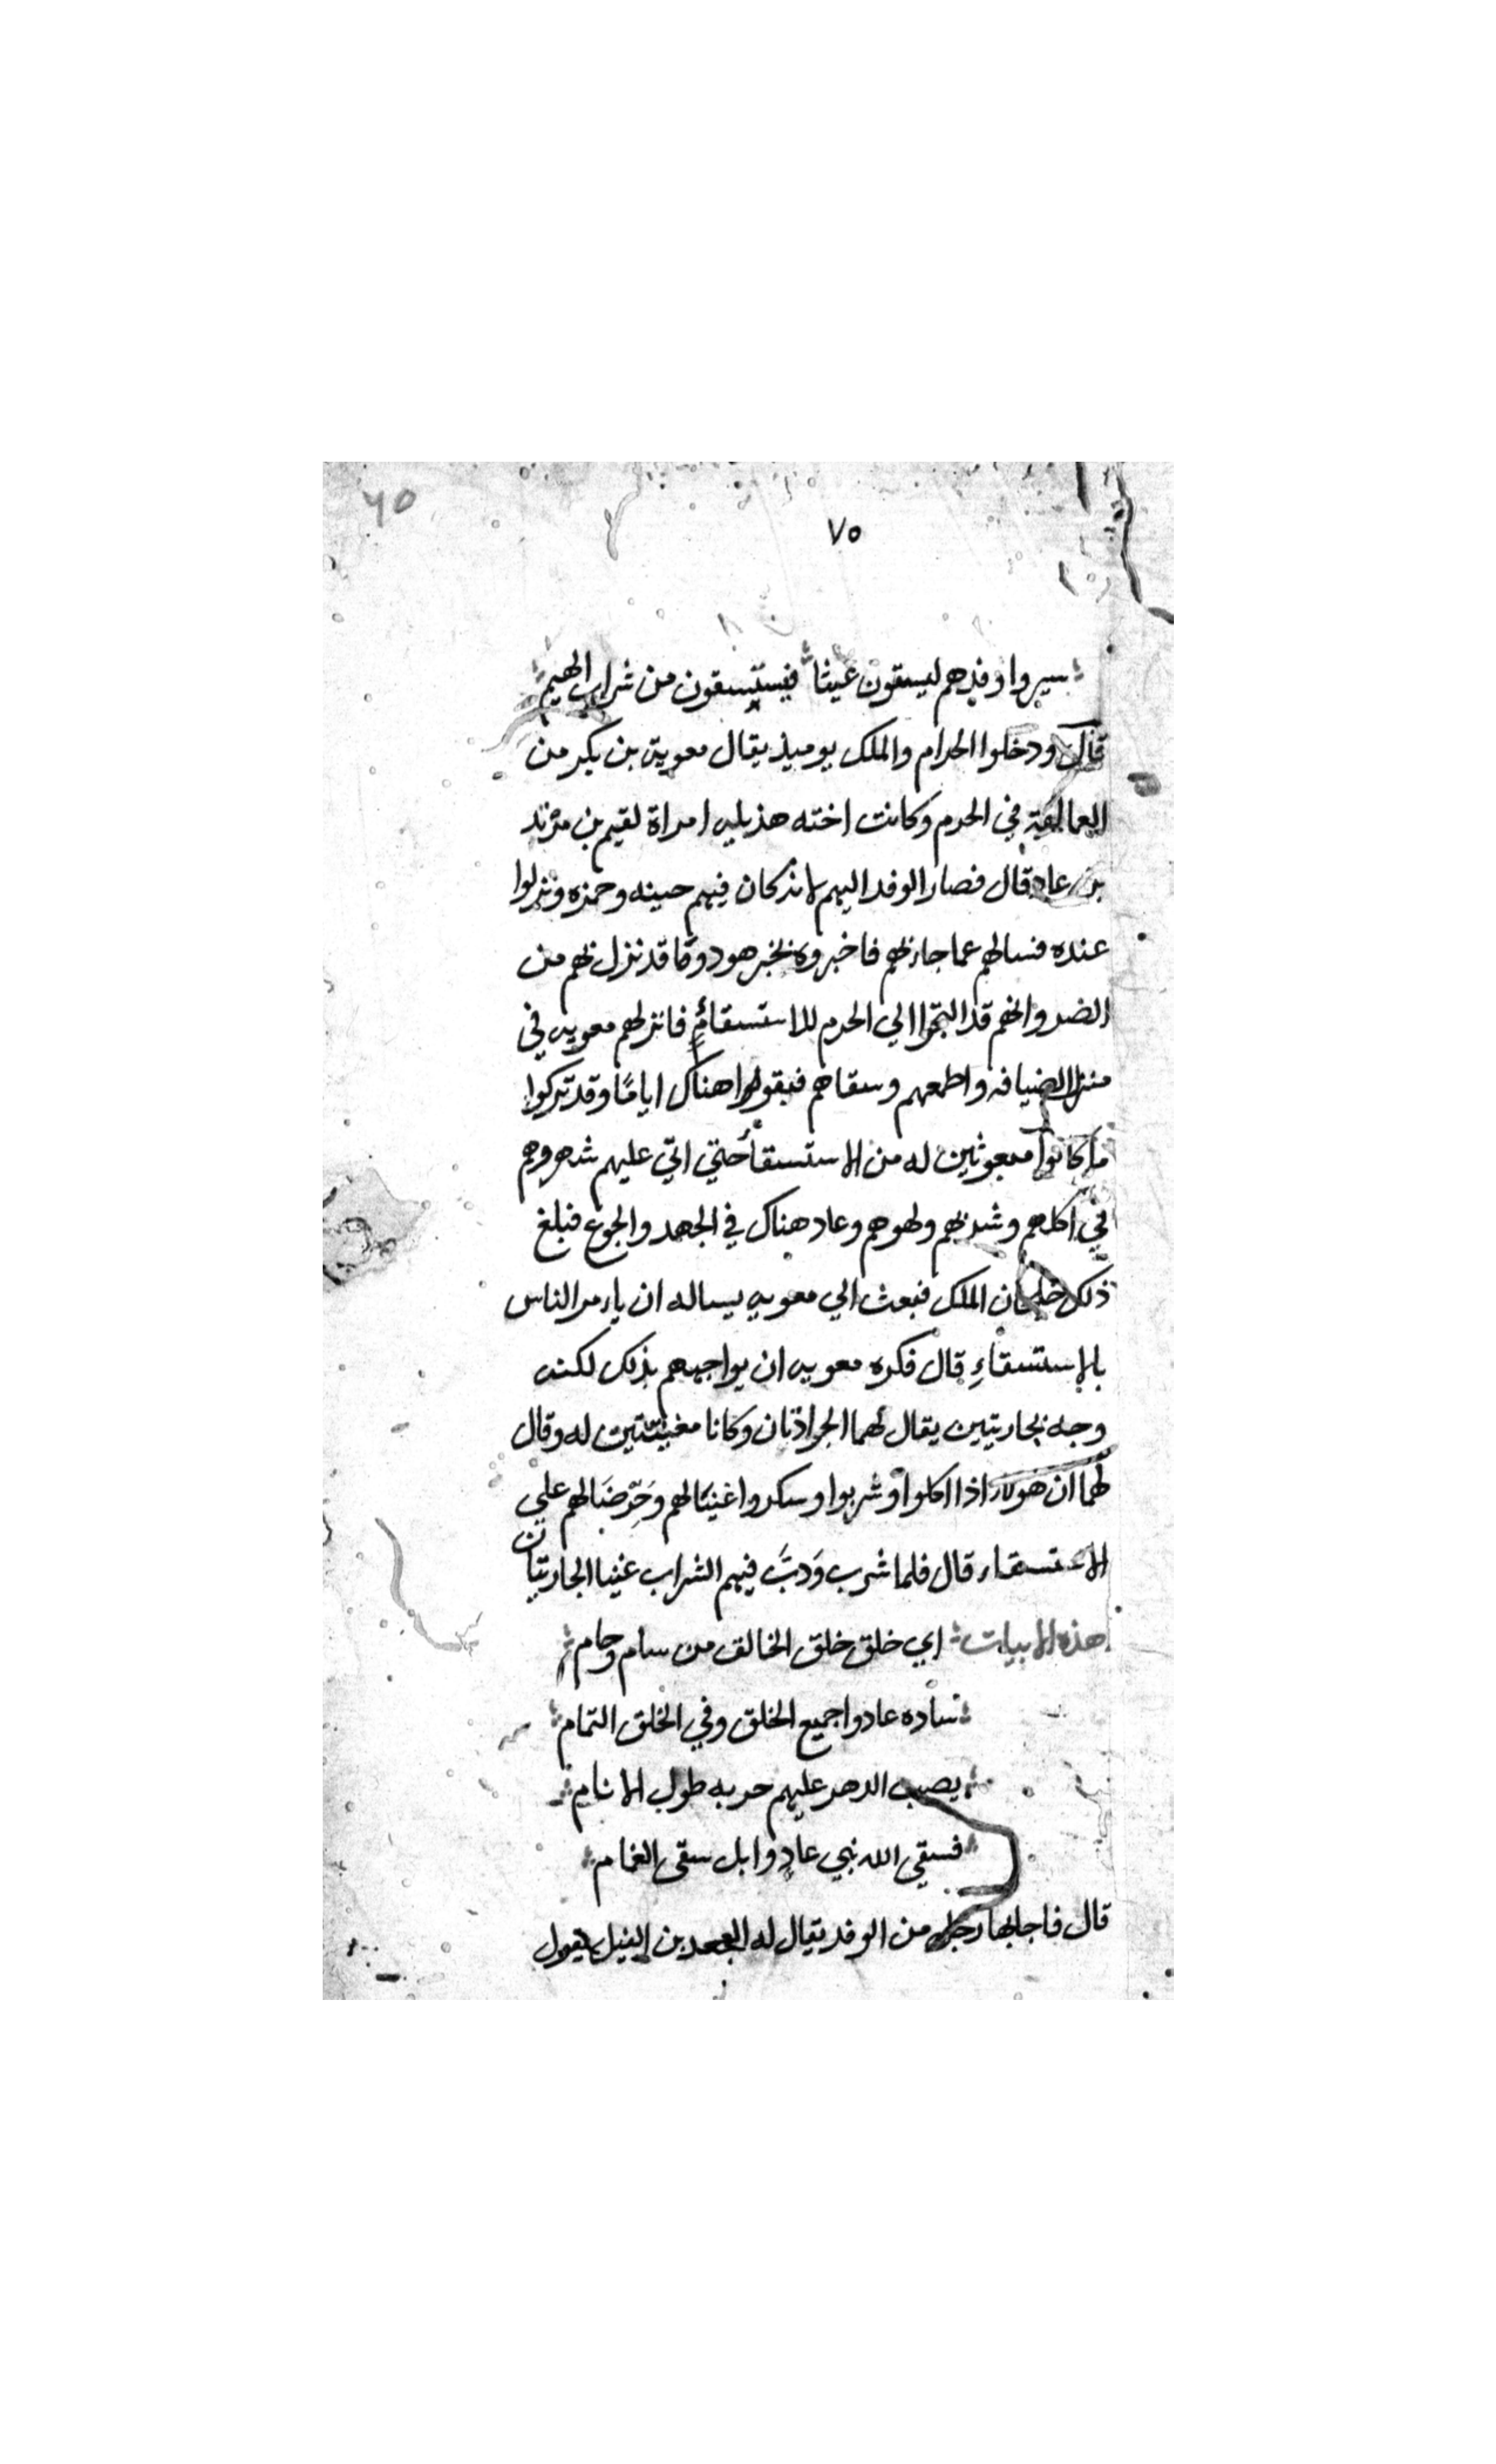 ٧٥
٦٥
سيروا وفدهم ليسقون غيثا فيستسقون من شراب الهيم
قال ودخلوا الحرام والملك يوميذ يقال معوية بن بكر من
العمالقة في الحرم وكانت اخته هذيله امراة لقيم بن مزند
بن عاد قال فصار الوفد اليهم لانه كان فيهم حينه وحمزه ونزلوا
عنده فسالهم عما جاء بهم فاخبروه بخبر هود وما قد نزل بهم من
الضر وانهم قد التجوا الي الحرم للاستسقاءٍ فانزلهم معويه في
منزل الضيافه واطعمهم وسقاهم فبقوا هناك ايامًا وقد تركوا
ما كانوا مبعوثين له من الاستسقأ حتي اتي عليهم شهر وهم
في اكلهم وشربهم ولهوهم وعاد هناك في الجهد والجوع فبلغ
ذلك خلجان الملك فبعث الي معويه يساله ان يامر الناس
بالاستسقاءِ قال فكره معويه ان يواجههم بذلك لكنه
وجه بجاريتين يقال لهما الجرادتان وكانا مغنيتين له وقال
لهما ان هولاء اذا اكلوا وشربوا وسكروا غنيا لهم وحَرّضَا لهم علي
الاستسقاء قال فلما شرب وَدبَّ فيهم الشراب غنيا الجاريتان
هذه الابيات اي خلق خلق الخالق من سام وحام
ساده عادوا جميع الخلق وفي الخلق التمام
يصب الدهر عليهم حربه طول الانام
فسقي الله بني عادٍ وابل سقى الغمام
قال فاجابها رجل من الوفد يقال له الجعد بن القيل يقول